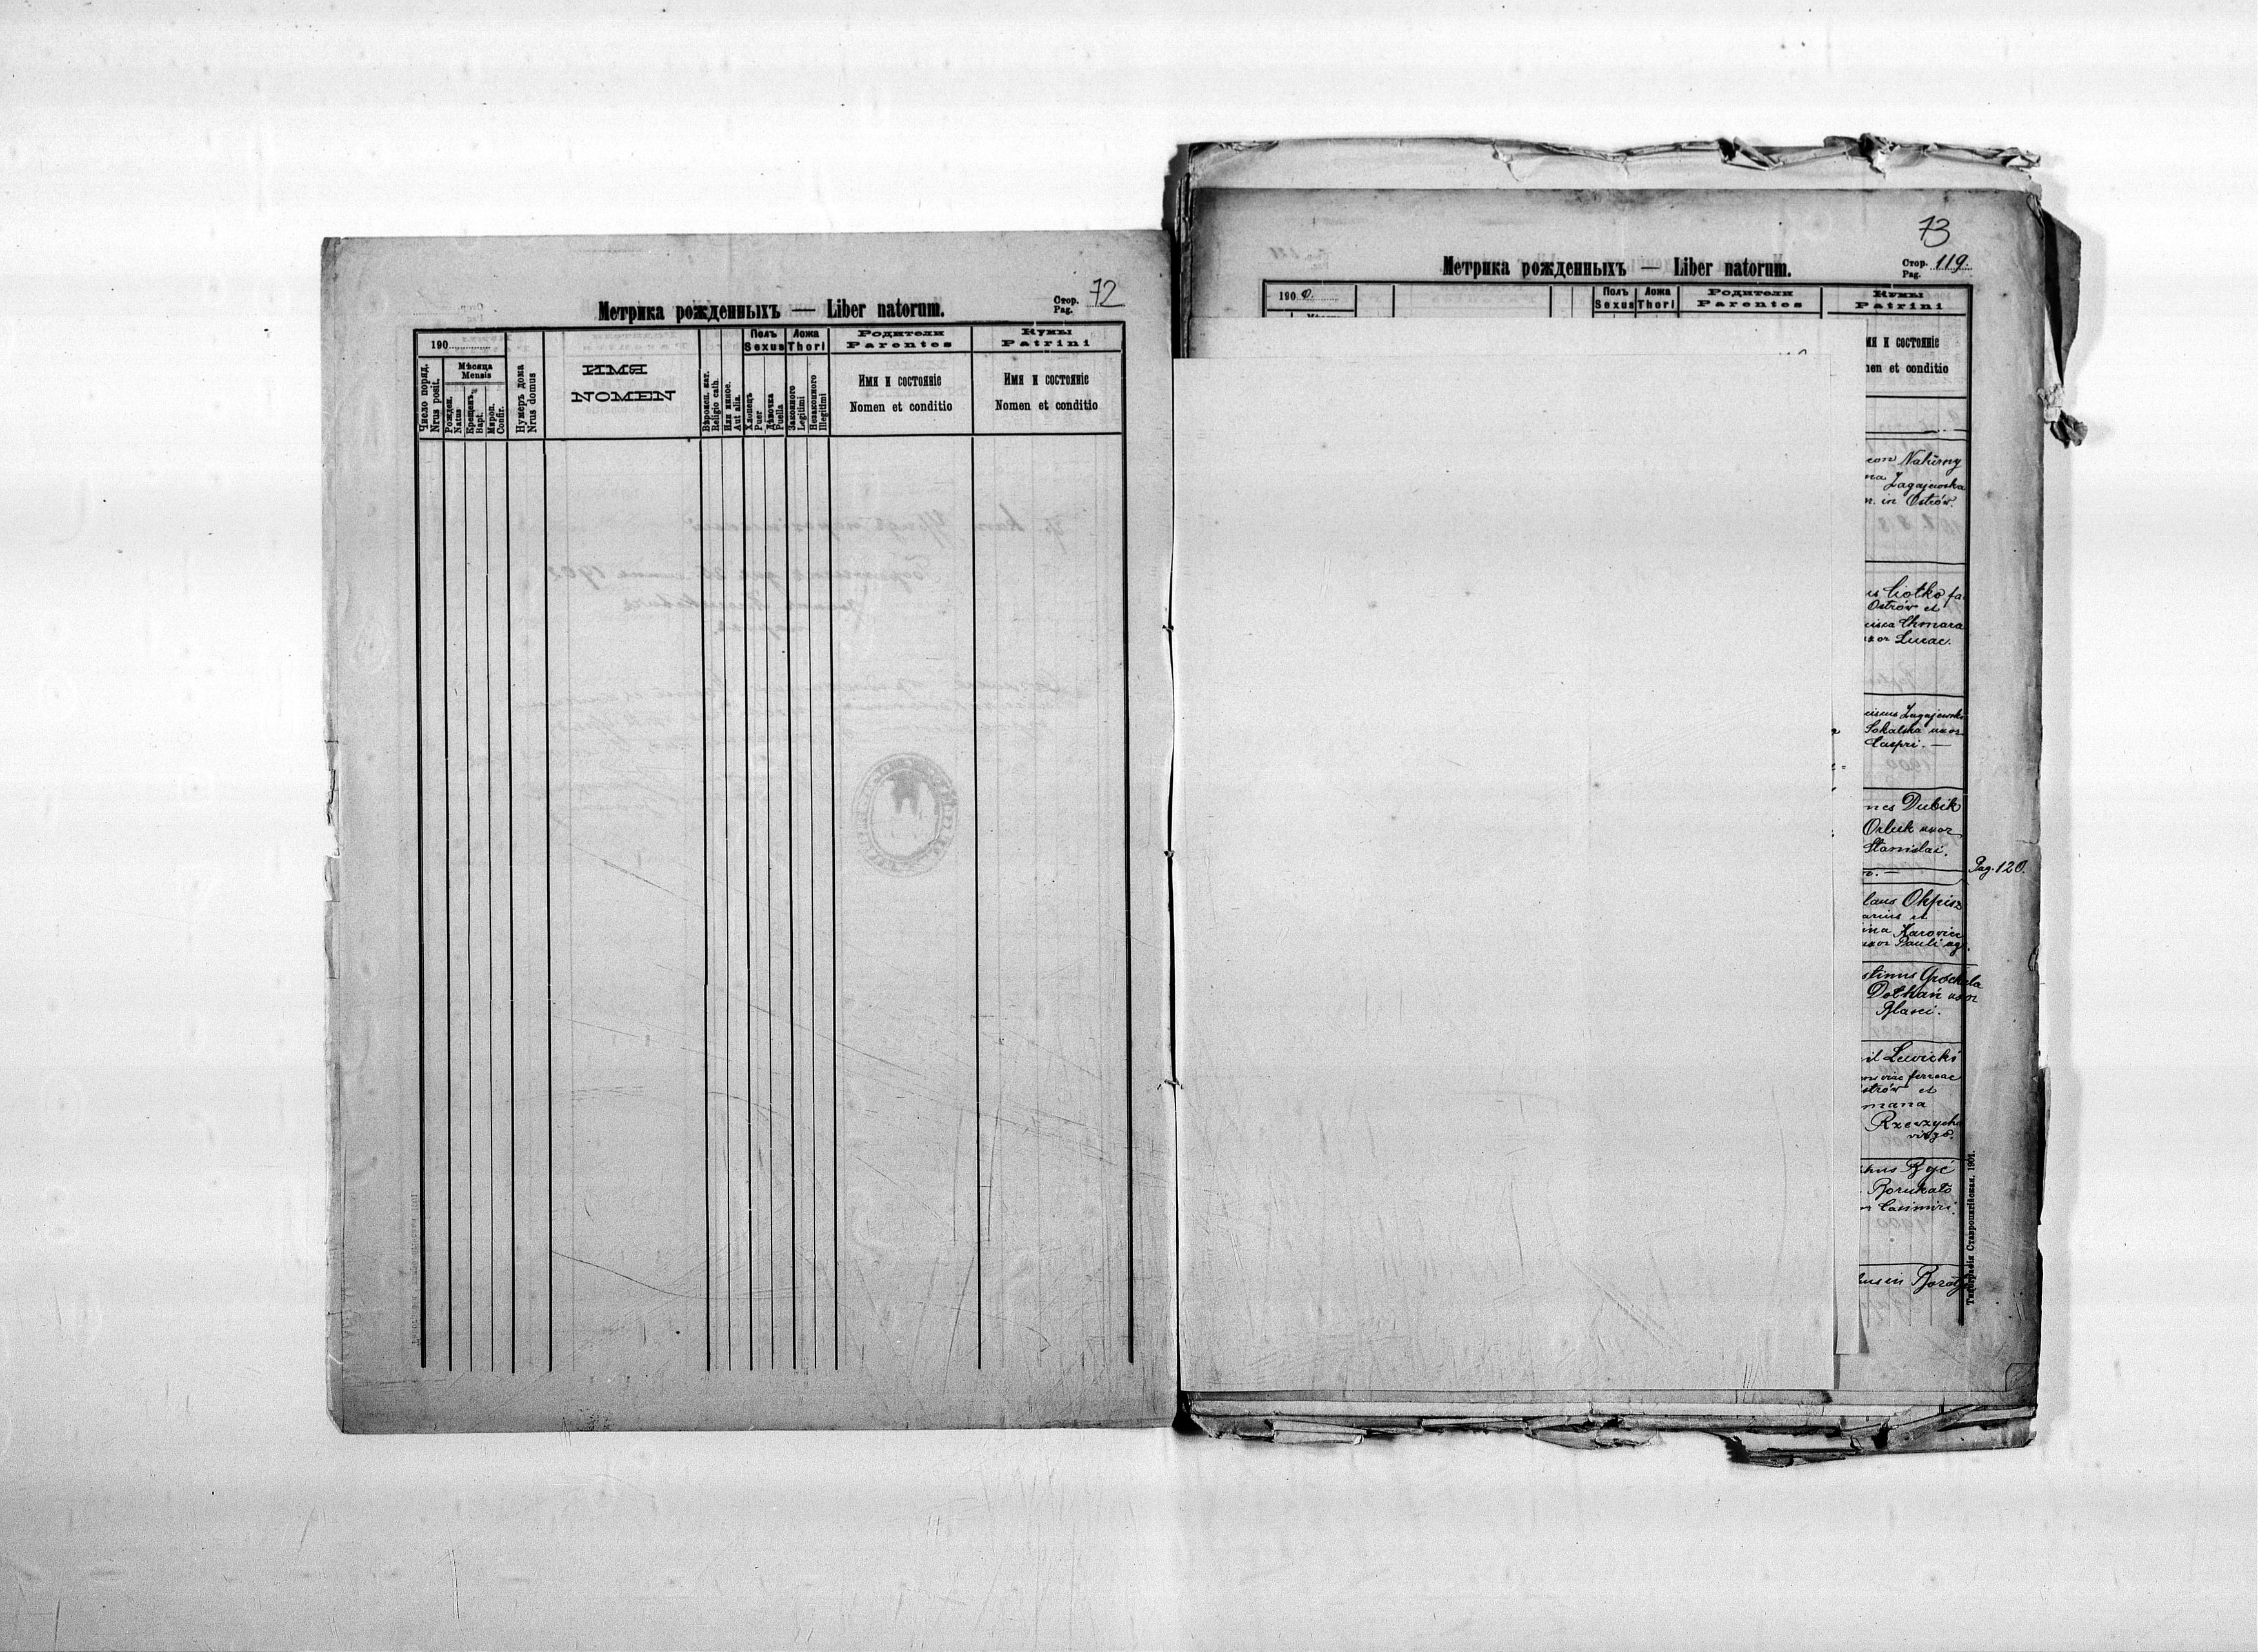 Метрика рожденныхъ — Liber natorum.
Стор.
Pag. 72
190
Число поряд.
Nrus posit.
Мѣсяца
Mensis
Рожден.
Natus
Крещенъ
Bapt.
Мѵроп.
Confir.
Нумеръ дома
Nrus domus
ИМЯ
NOMEN
Вѣроисп. кат.
Religio cath.
Или иное.
Aut alia.
Полъ
Sexus
Хлопецъ
Puer
Дѣвочка
Puella
Ложа
Thori
Законного
Legitimi
Незаконного
Illegitimi
Родители
Parentes
Имя и состояніе
Nomen et conditio
Кумы
Patrini
Имя и состояніе
Nomen et conditio
73
Метрика рожденныхъ — Liber natorum.
Стор. 119.
Pag.
190 0.
Полъ
Sexus
Ложа
Thori
Родители
Parentes
Кумы
Patrini
мя и состояніе
men et conditio
eon Nahirny
na Zagajewska
n. in Ostrów.
us Ciotko fa
Ostrów et
cisca Chmara
uxor Lucae.
ciscus Zagajewski
Sokalska uxor
Caspri. —
nes Dubik
Orluk uxor
Stanislai.
Pag. 120.
laus Okpisz
arius et
ina Karowiec
uxor Pauli agr.
stinus Grochala
Dolhań uxor
Blasei.
il Lewicki
viae ferreae
strów et
mana
Rzeszycha
virgo.
hus Być
Borukało
Casimiri.
Типографія Ставропигійская. 1901.